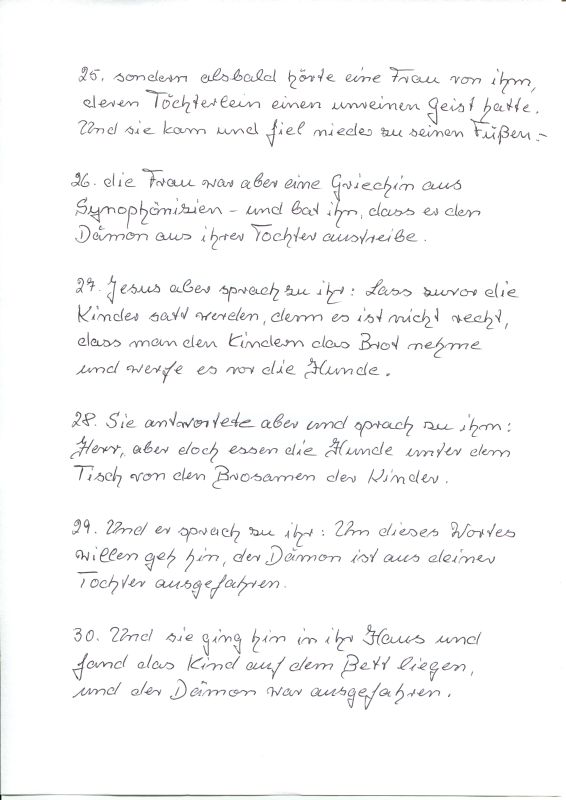 25. sondern alsbald hörte eine Frau von ihm,
deren Töchterlein einen unreinen Geist hatte.
Und sie kam und fiel nieder zu seinen Füßen.-
26. die Frau war aber eine Griechin aus
Synophönizien - und bat ihn, dass er den
Dämon aus ihrer Tochter austreibe.
27. Jesus aber sprach zu ihr: Lass zuvor die
Kinder satt werden, denn es ist nicht recht,
dass man den Kindern das Brot nehme
und werfe es vor die Hunde.
28. Sie antwortete aber und sprach zu ihm:
Herr, aber doch essen die Hunde unter dem
Tisch von den Brosamen der Kinder.
29. Und er sprach zu ihr: Um dieses Wortes
willen geh hin, der Dämon ist aus deiner
Tochter ausgefahren.
30. Und sie ging hin in ihr Haus und
fand das Kind auf dem Bett liegen,
und der Dämon war ausgefahren.